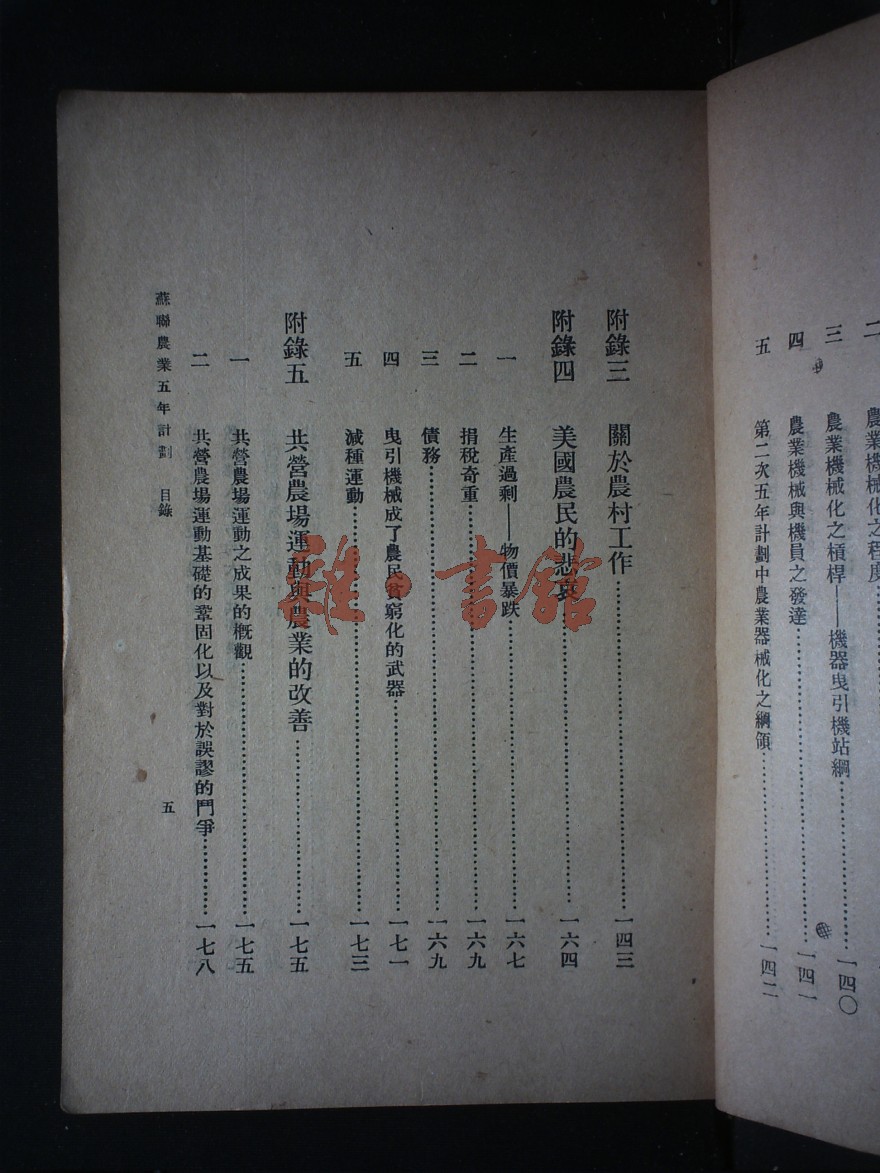 農業機械化之程度
三 農業機械化之槓桿——機器曳引機站網……一四〇
四 農業機械與機員之發達……一四一
五 第二次五年計劃中農業器械化之綱領……一四二
附錄三 關於農村工作……一四三
附錄四 美國農民的悲哀……一六四
一 生產過剩——物價暴跌……一六七
二 捐稅奇重……一六九
三 債務……一六九
四 曳引機械成了農民貧窮化的武器……一七一
五 減種運動……一七三
附錄五 共營農場運動與農業的改善……一七五
一 共營農場運動之成果的概觀……一七五
二 共營農場運動基礎的鞏固化以及對於誤謬的鬥爭……一七八
蘇聯農業五年計劃 目錄 五
雜·書館